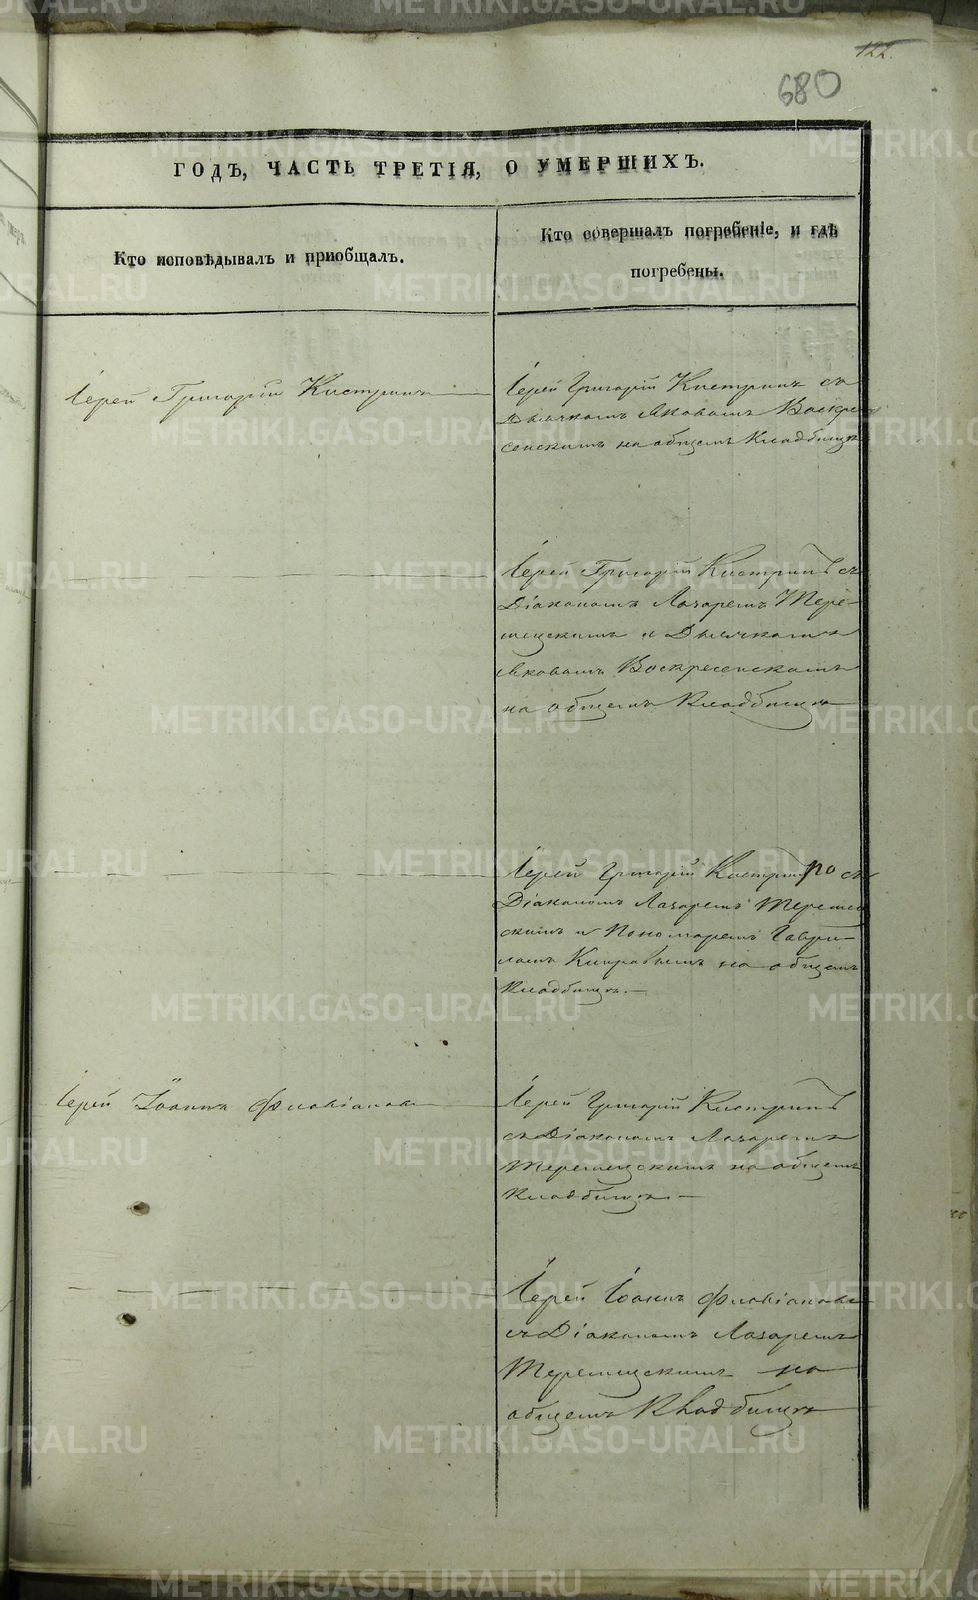 122.
680
ГОДЪ, ЧАСТЬ ТРЕТІЯ, О УМЕРШИХЪ.
Кто исповѣдывалъ и пріобщалъ.
Кто совершалъ погребеніе, и гдѣ
погребены.
Іерей Григорій Кистринъ
Іерей Григорій Кистринъ съ
Дьячкомъ Яковомъ Воскре
сенскимъ на общемъ Кладбищѣ
Іерей Григорій Кистринъ съ
Діакономъ Лазаремъ
и Дьячкомъ
Яковомъ Воскресенскимъ
на общемъ Кладбищѣ
Іерей Григорій съ
Діакономъ Лазаремъ
скимъ и Пономаремъ Гаври-
ломъ на общемъ
Кладбищѣ.—
Іерей Іоаннъ Флавіановъ
Іерей Григорій Кистринъ
съ Діакономъ Лазаремъ
на общемъ
Кладбищѣ.—
Іерей Іоаннъ Флавіановъ
съ Діакономъ Лазаремъ
на
общемъ Кладбищѣ
METRIKI.GASO-URAL.RU